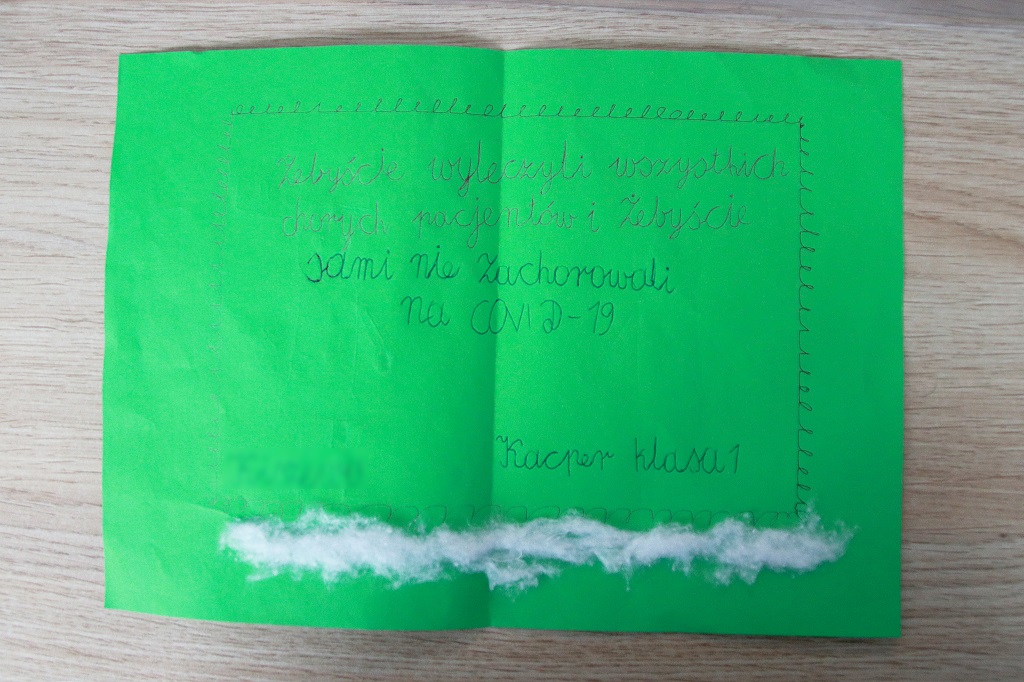 Żebyście wyleczyli wszystkich
chorych pacjentów i Żebyście
sami nie zachorowali
na COVID-19
Kacper klasa 1